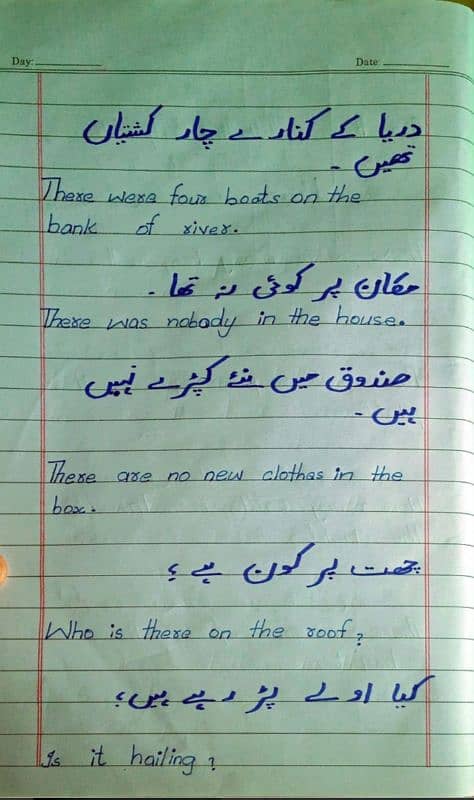 Day: Date:
دریا کے کنارے چار کشتیاں
تھیں ۔
There were four boats on the
bank of river.
مکان پر کوئی نہ تھا ۔
There was nobody in the house.
صندوق میں نئے کپڑے نہیں
ہیں ۔
There are no new clothes in the
box.
چھت پر کون ہے ؟
Who is there on the roof?
کیا اولے پڑ رہے ہیں؟
Is it hailing?